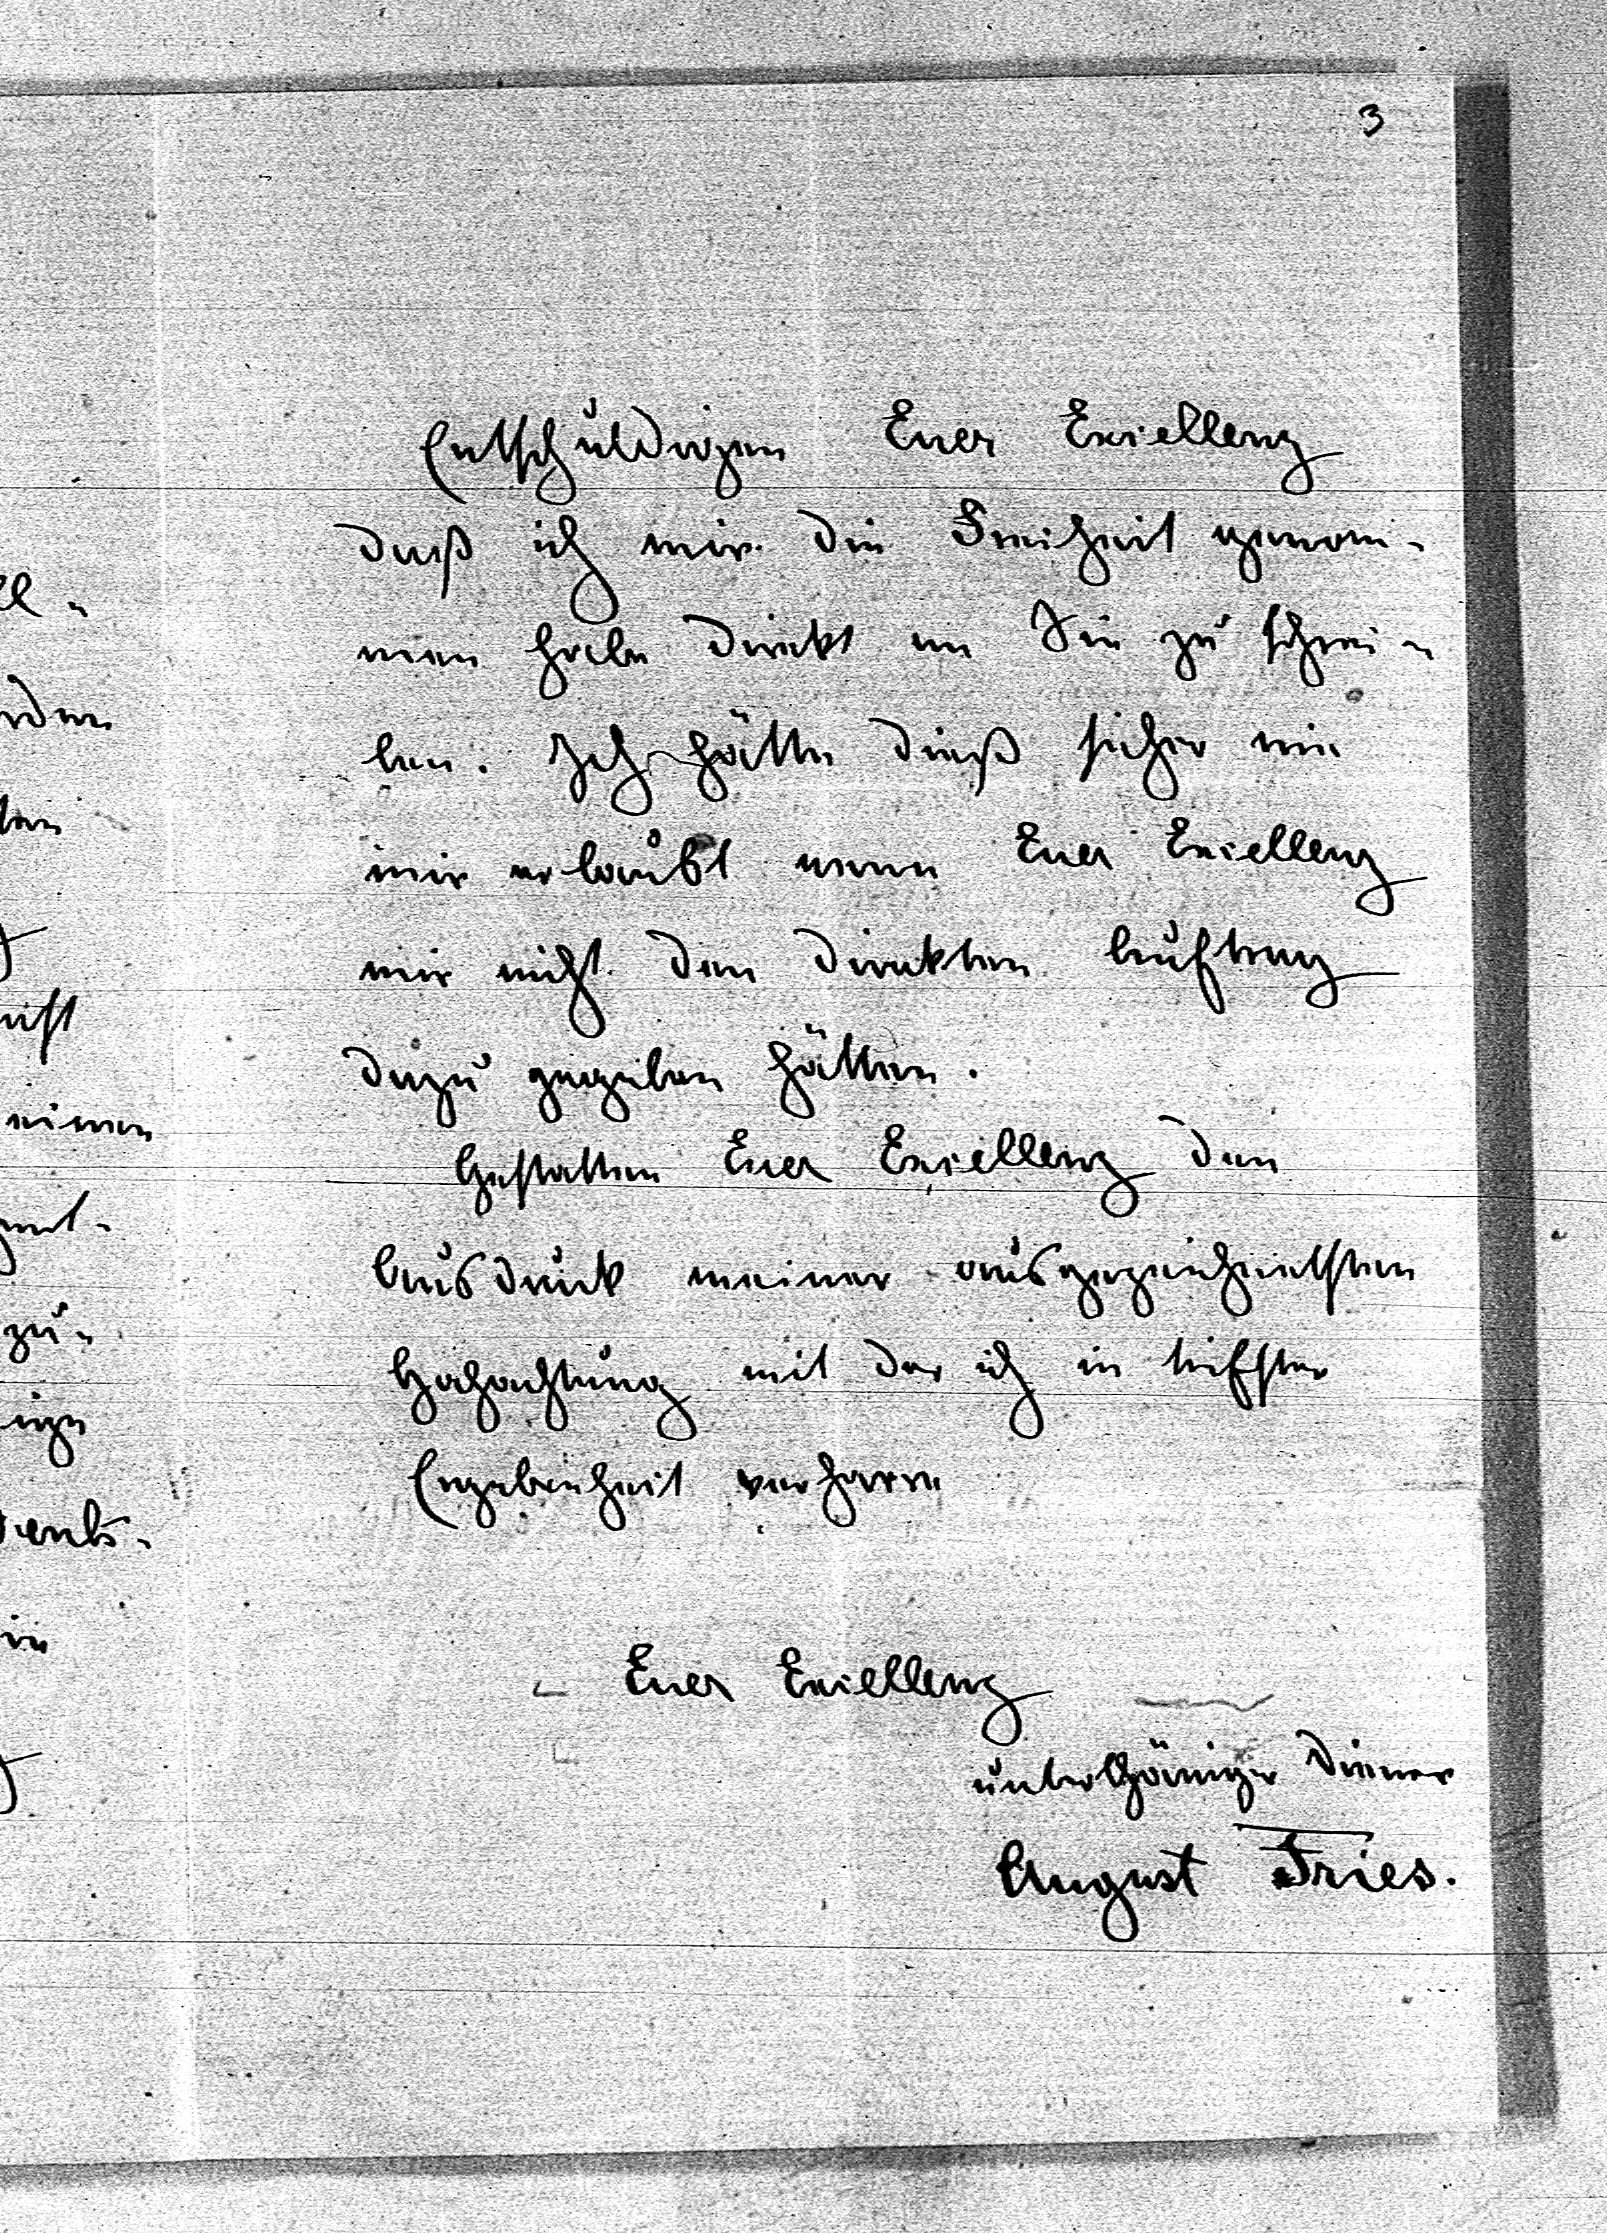 3
Entschuldigen Euer Exiellenz
daß ich mir die Freiheit genom-
men habe direkt an Sie zu schrei-
ben. Ich hätte dieß sicher nie
mir erlaubt wenn Euer Exiellenz
mir nicht den direkten Auftrag
dazu gegeben hätten.
Gestatten Euer Exiellenz den
Ausdruck meiner ausgezeichnetsten
Hochachtung mit der ich in tiefster
Ergebenheit verharre
Euer Exiellenz
unterthäniger Diener
August Fries.